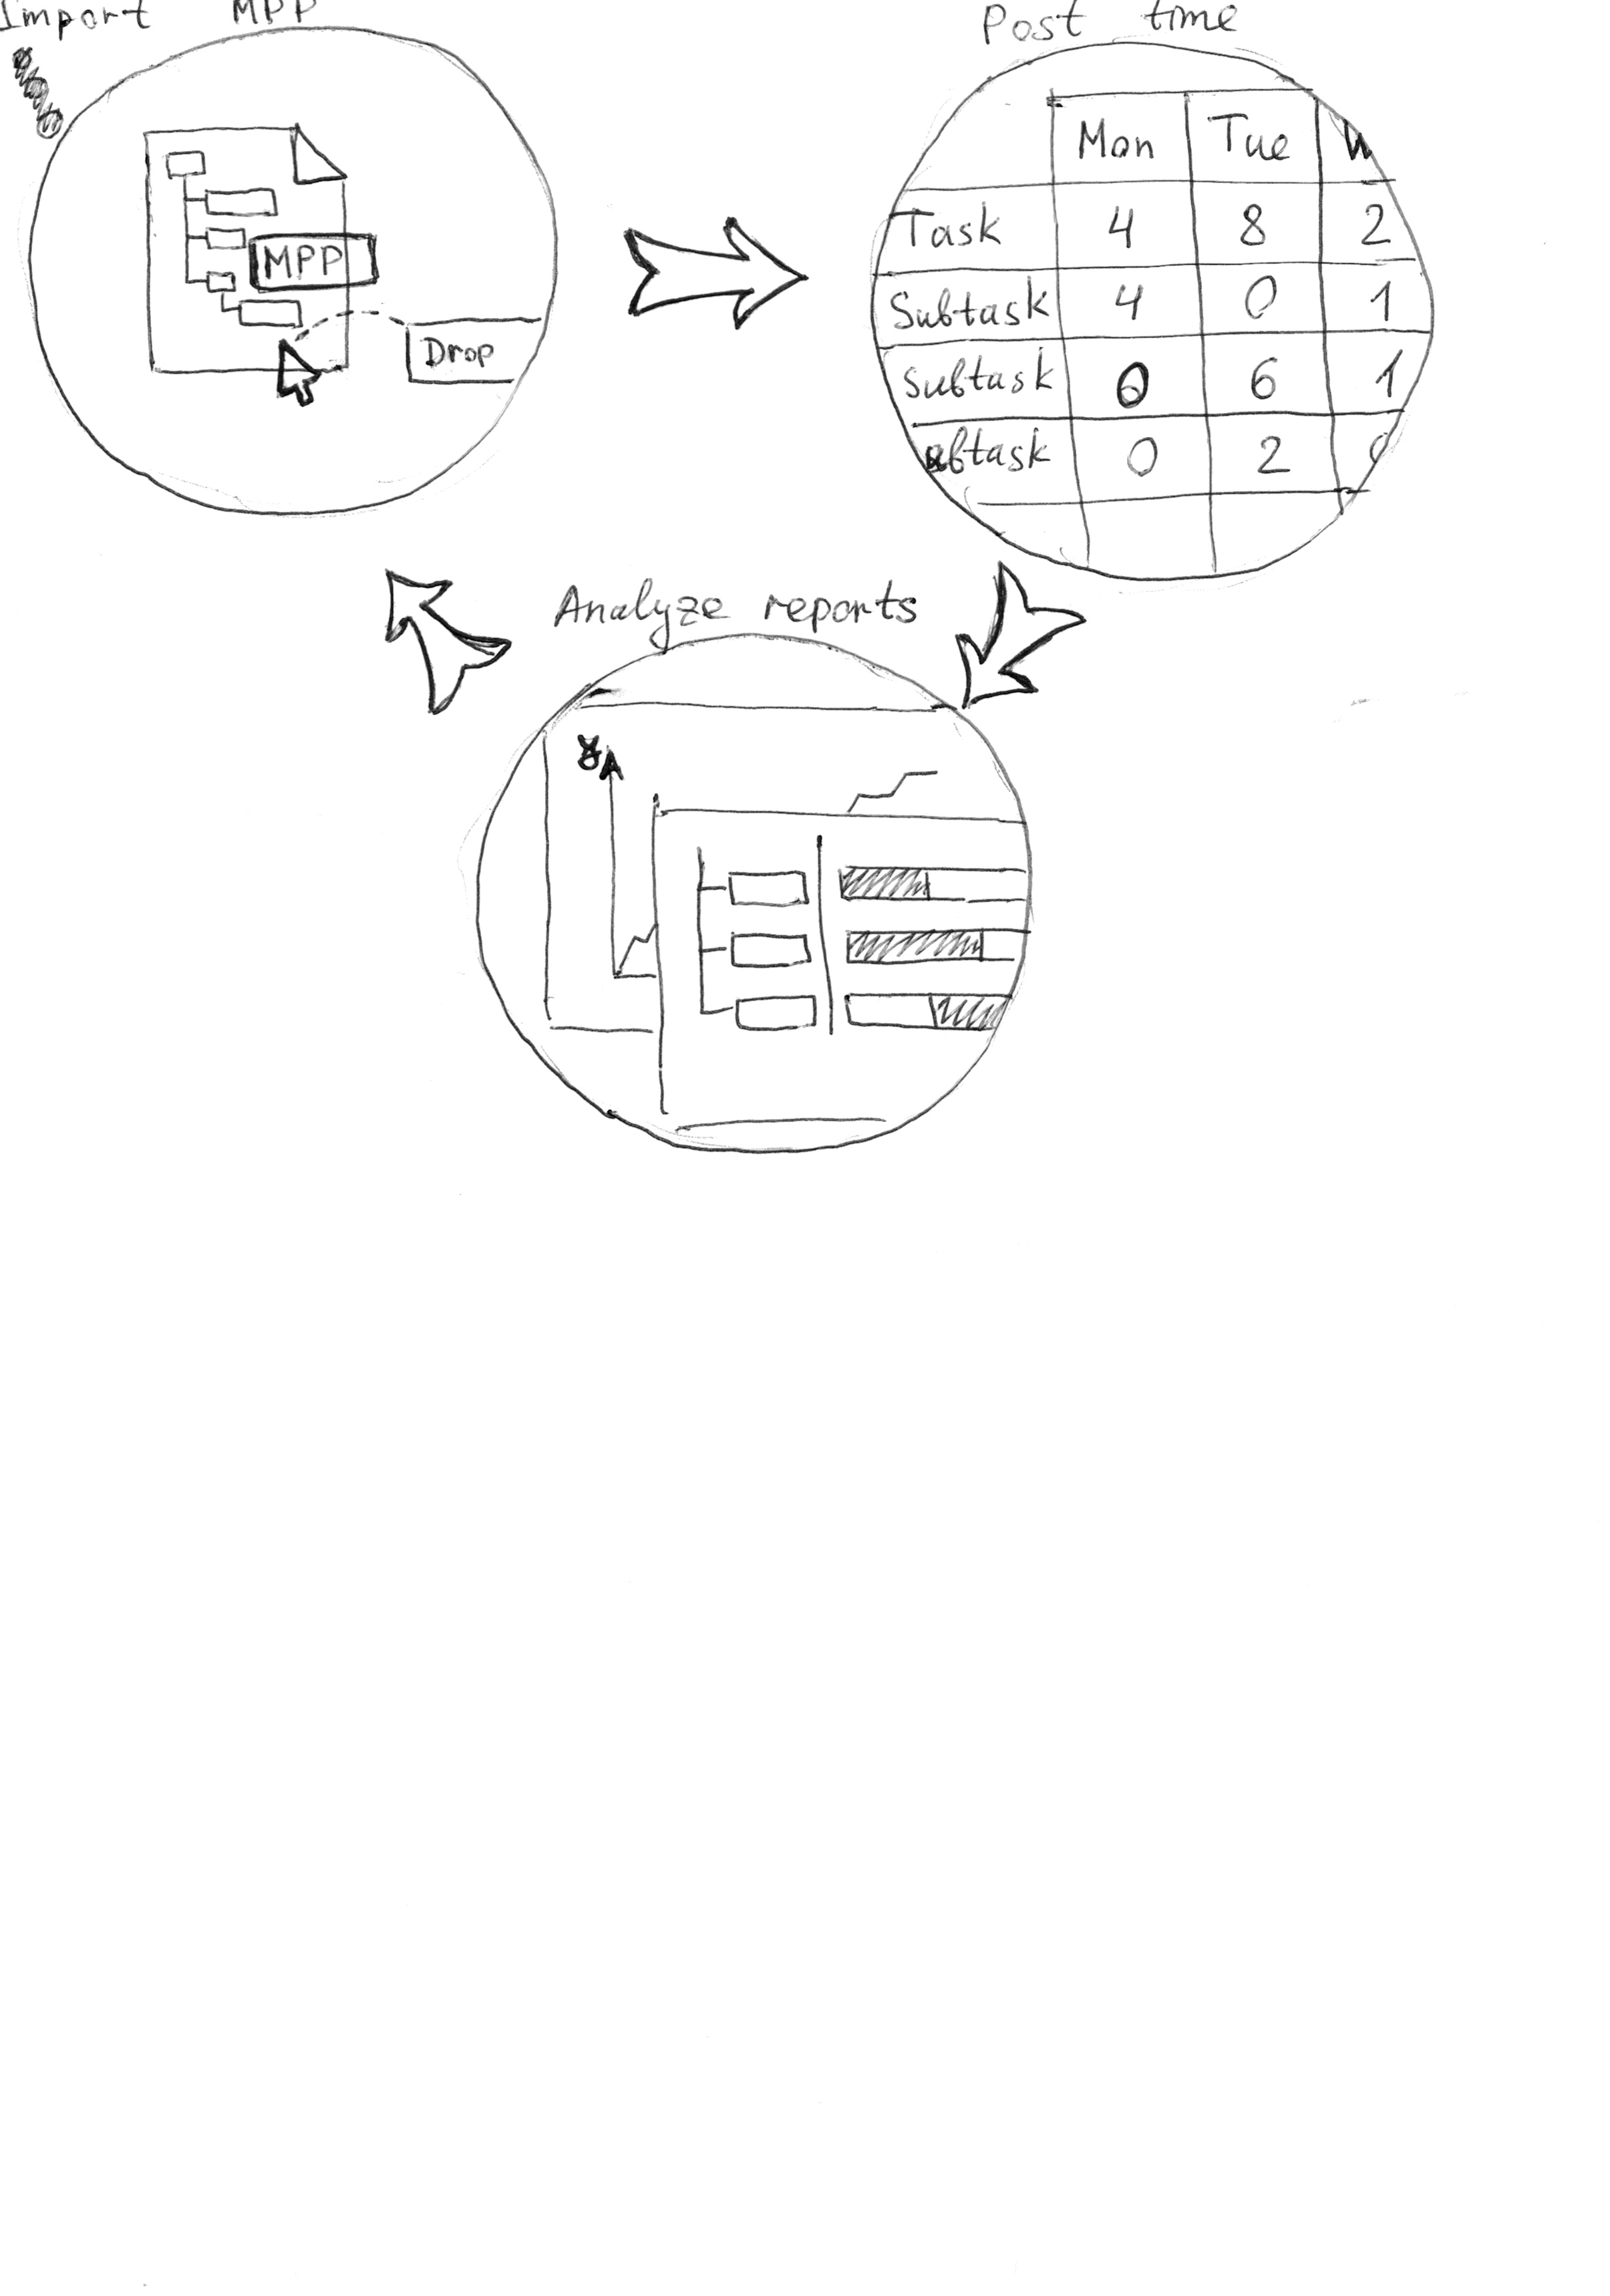 Import MPP
MPP
Drop
Post time
Mon Tue
Task 4 8 2
Subtask 4 0 1
Subtask 0 6 1
ubtask 0 2
Analyze reports